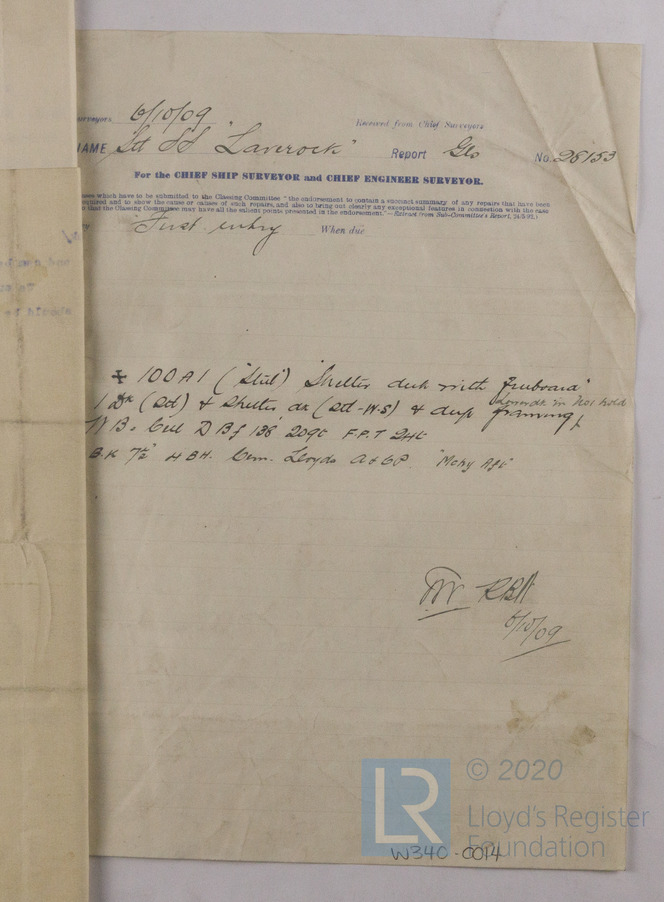 urveyors 6/10/09 Received from Chief Surveyors
NAME Stl SS "Laverock" Report Gls No. 26153
For the CHIEF SHIP SURVEYOR and CHIEF ENGINEER SURVEYOR.
ses which have to be submitted to the Classing Committee "the endorsement to contain a succinct summary of any repairs that have been
equired and to show the cause or causes of such repairs, and also to bring out clearly any exceptional features in connection with the case
that the Classing Committee may have all the salient points presented in the endorsement."—Extract from Sub-Committee's Report, 24/5/93.)
First entry When due
✠ 100A1 (Steel) "Shelter deck with freeboard"
1 Dk (Stl) & Shelter dk (Stl-W.S) & deep framing,
in No1 hold
W.B. Cell D B 138 209t F.P.T 24t
B.K 7½" 4 BH. Cem. Lloyds A & CP. "Mchy Aft"
RBH
6/10/09
LR
© 2020
Lloyd's Register
Foundation
W340-0014